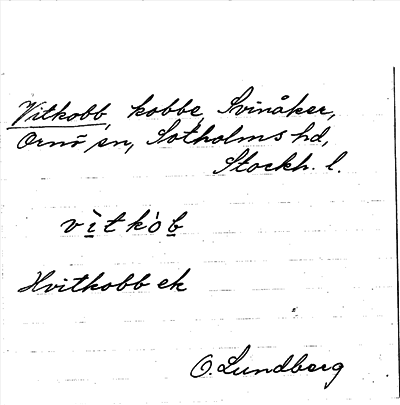 Vitkobb, kobbe, Svinåker,
Ornö sn, Sotholms hd,
Stockh. l.
vìtkòb
Hvitkobb ek
O. Lundberg